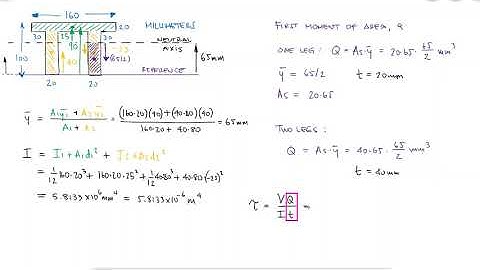 160
20
30
25
30
90
40
-25
(65/2)
100
20
20
MILLIMETERS
NEUTRAL AXIS
65mm
REFERENCE
ȳ = A₁ȳ₁ + A₂ȳ₂ / A₁ + A₂ = (160·20)(90)+(40·80)(40) / 160·20 + 40·80 = 65mm
I = I₁+A₁d₁² + I₂+A₂d₂²
= 1/12 160·20³ + 160·20·25² + 1/12 40·80³ + 40·80(-25)²
= 5.8133×10⁶ mm⁴ = 5.8133×10⁻⁶ m⁴
FIRST MOMENT OF AREA, Q
ONE LEG: Q = As·ȳ = 20·65·65/2 mm³
ȳ = 65/2 t = 20mm
As = 20·65
TWO LEGS:
Q = As·ȳ = 40·65·65/2 mm³
t = 40mm
τ = VQ/It =